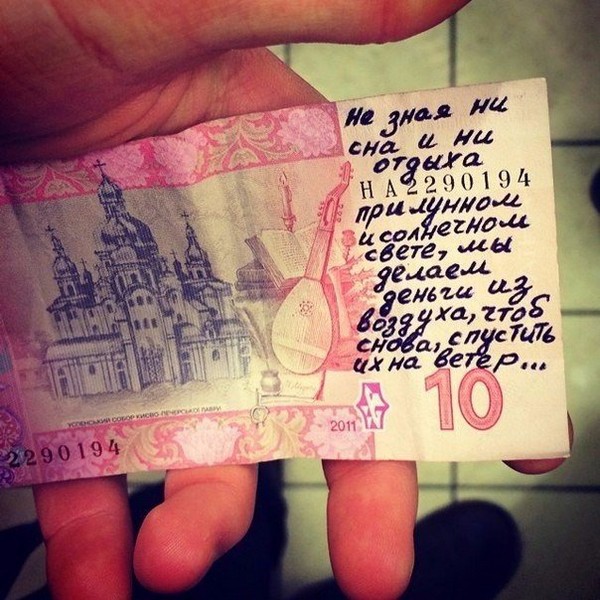 Не зная ни
сна и ни
отдыха
НА2290194
при лунном
и солнечном
свете, мы
делаем
деньги из
воздуха, чтоб
снова, спустить
их на ветер...
10
УСПЕНСЬКИЙ СОБОР КИЄВО-ПЕЧЕРСЬКОЇ ЛАВРИ
2011
2290194